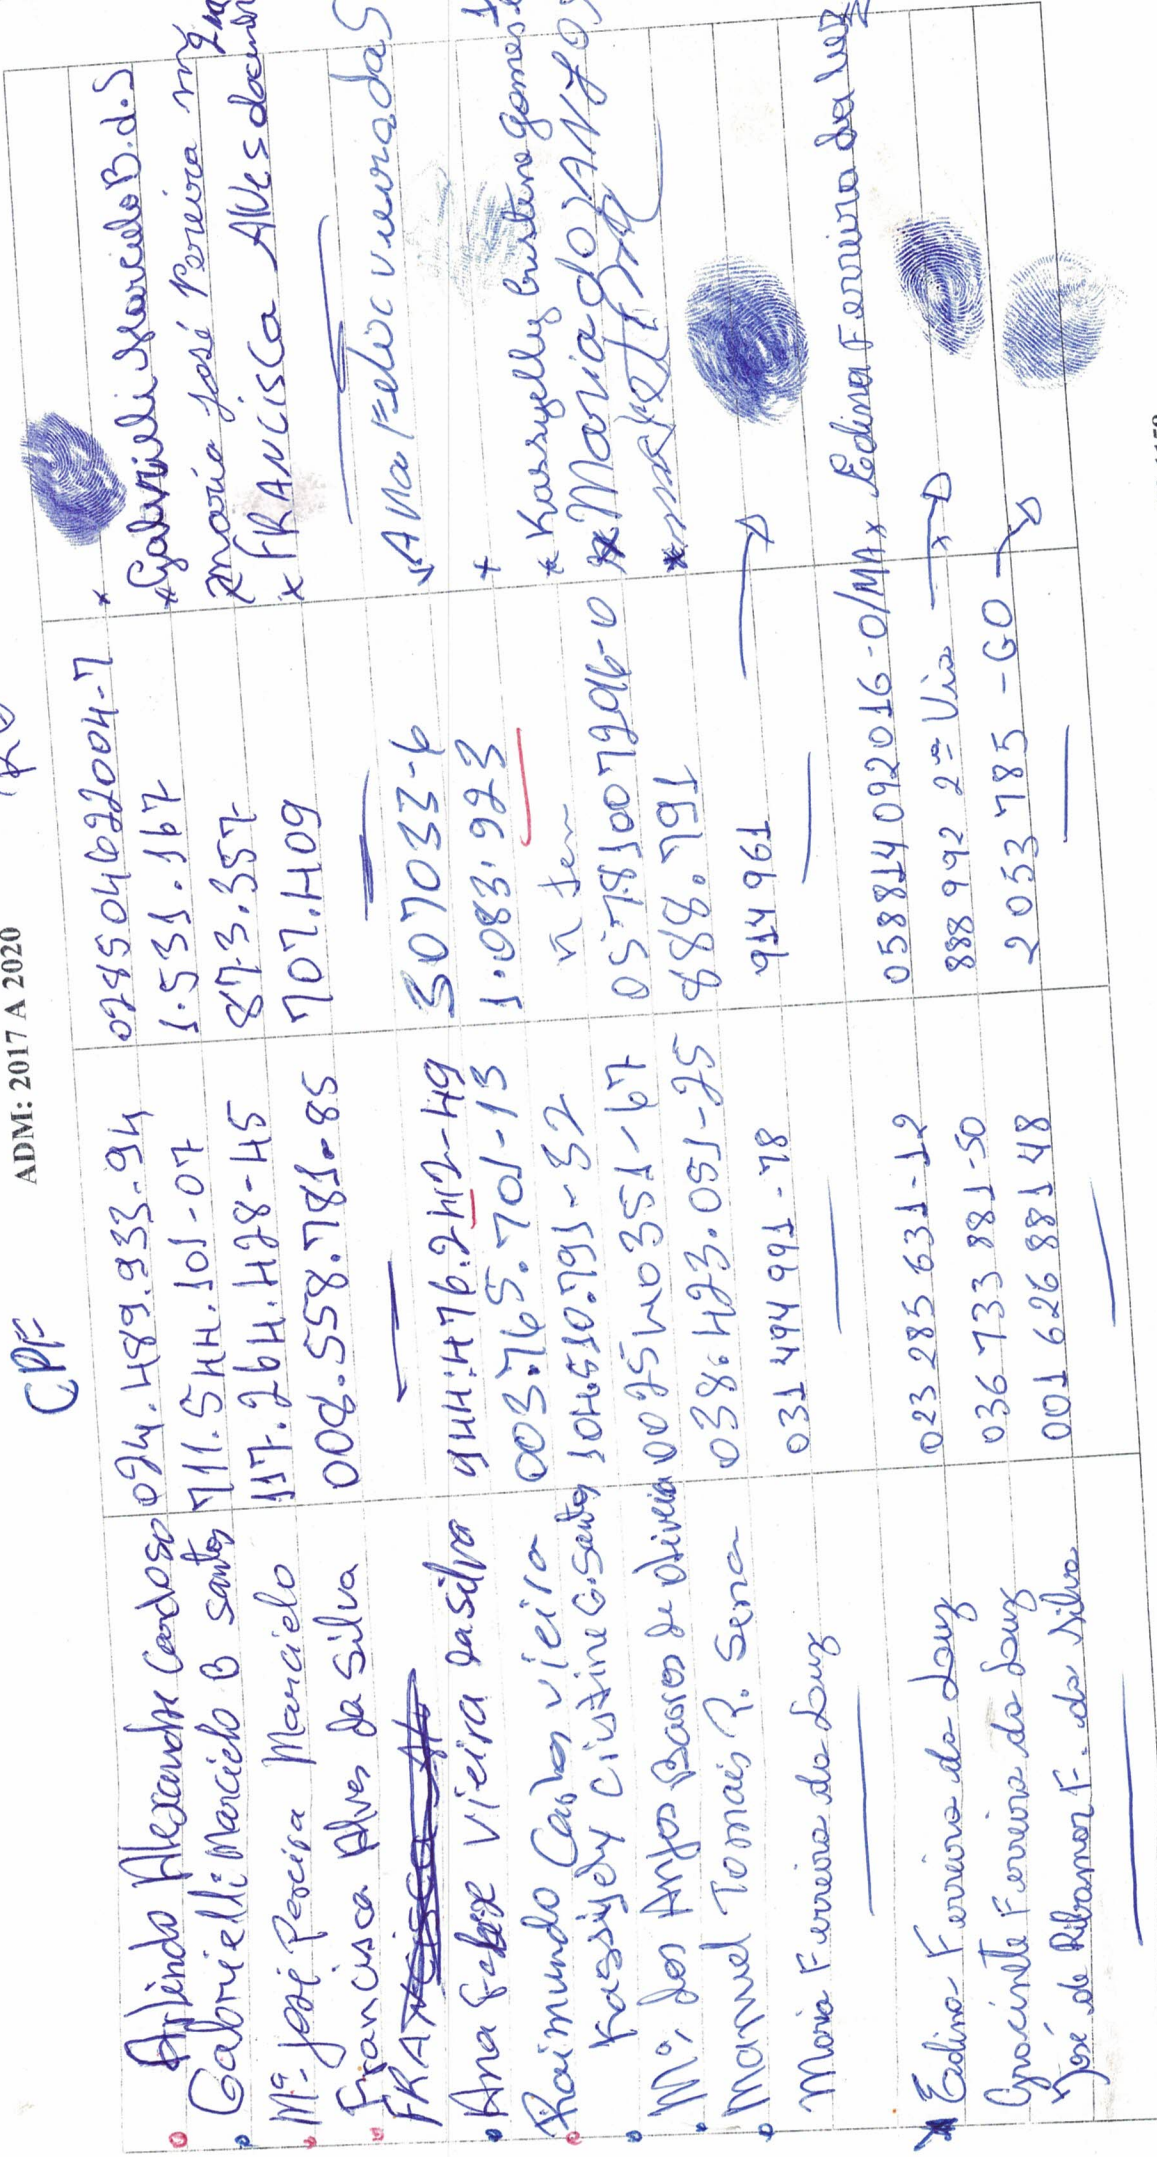 ADM: 2017 A 2020
CPF
Arlindo Alexandre Cardoso 024.489.933-94 028504622004-7
Gabrielli Marcielo B santos 711.544.101-07 1.531.167 Gabrielli Marcielo B.d.S
Mª José Pereira Marcielo 117.264.428-45 873.357 maria José Pereira
Francisca Alves da Silva 008.558.781-85 707.409 x FRANCISCA ALVES
Ana Felix Vieira da silva 944.476.242-49 307033-6 ANA Felix vieira da S
Raimundo Carlos vieira 003.765.701-13 1.083.923 +
Kassyely Cristine G. Santos 104.510.791-32 ñ tem
Mª dos Anjos Barros de oliveira 002540351-67 057810072016-0 Maria do ANJOS
Manuel Tomais R. Sena 038.423.051-25 888.791
Maria Ferreira da Luz 031 494 991-78 914 961
Edina Ferreira da Luz 023 285 631-12 058814092016-0/MA x Edina Ferreira da luz
Gracinete Ferreira da Luz 036 733 881-50 888 992 2ª Via
José de Ribamar F. da Silva 001 626 881 48 2053785-GO